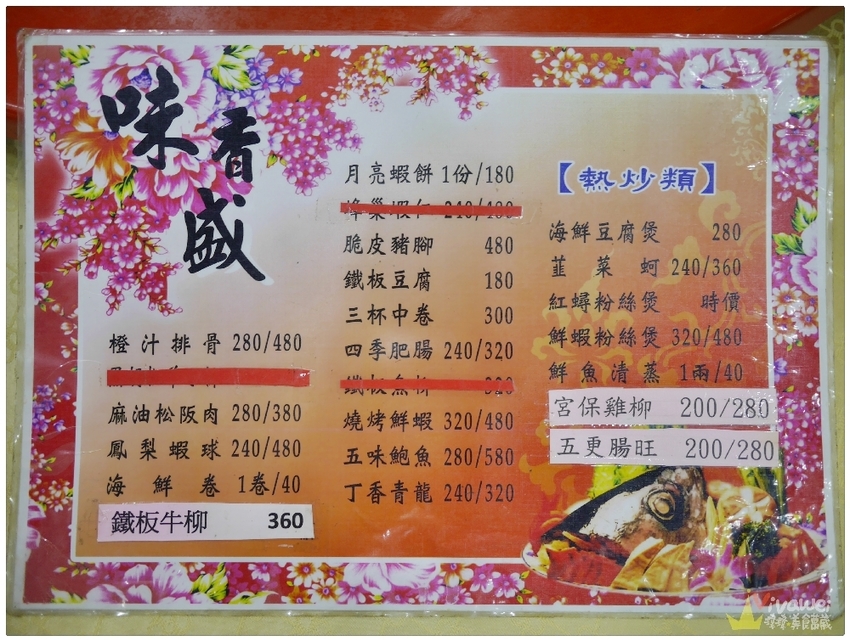 味香盛
橙汁排骨 280/480
麻油松阪肉 280/380
鳳梨蝦球 240/480
海鮮卷 1卷/40
鐵板牛柳 360
月亮蝦餅 1份/180
蜂巢蝦仁 240/480
脆皮豬腳 480
鐵板豆腐 180
三杯中卷 300
四季肥腸 240/320
鐵板魚柳 320
燒烤鮮蝦 320/480
五味鮑魚 280/580
丁香青龍 240/320
【熱炒類】
海鮮豆腐煲 280
韮菜蚵 240/360
紅蟳粉絲煲 時價
鮮蝦粉絲煲 320/480
鮮魚清蒸 1兩/40
宮保雞柳 200/280
五更腸旺 200/280
ivawei